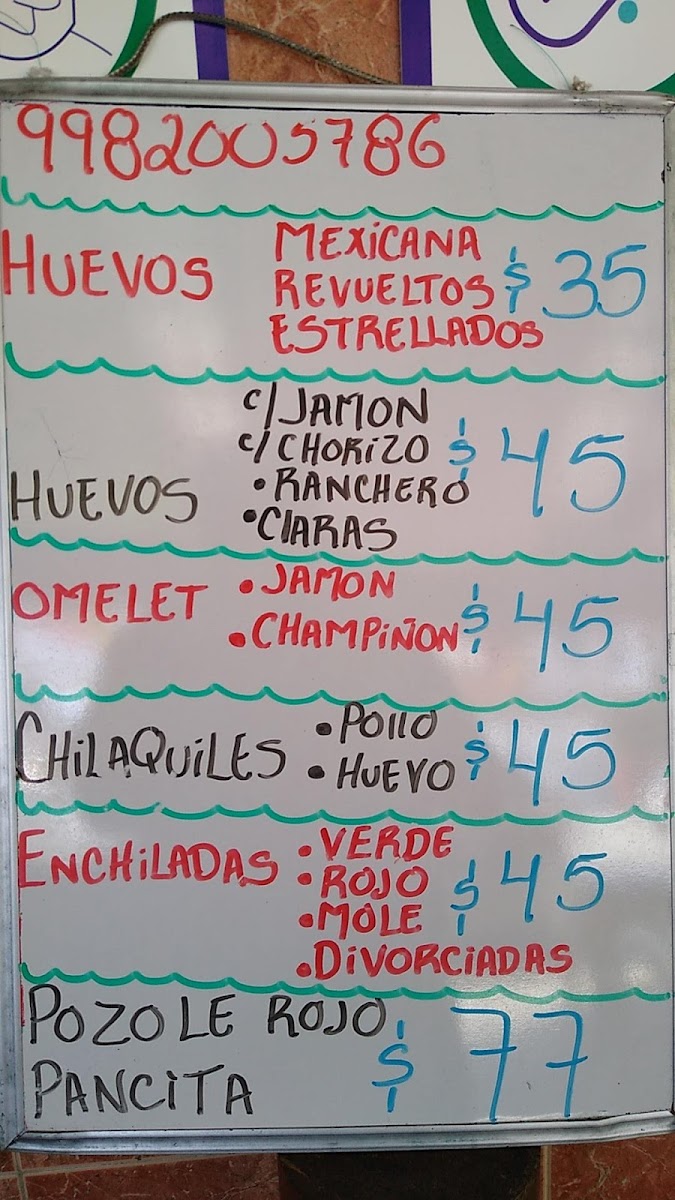 9982005786
HUEVOS MEXICANA
REVUELTOS $35
ESTRELLADOS
HUEVOS c/JAMON
c/CHORIZO $45
•RANCHERO
•CLARAS
OMELET •JAMON
•CHAMPIÑON $45
CHILAQUILES •POLLO
•HUEVO $45
ENCHILADAS •VERDE
•ROJO $45
•MOLE
•DIVORCIADAS
POZOLE ROJO
PANCITA $77